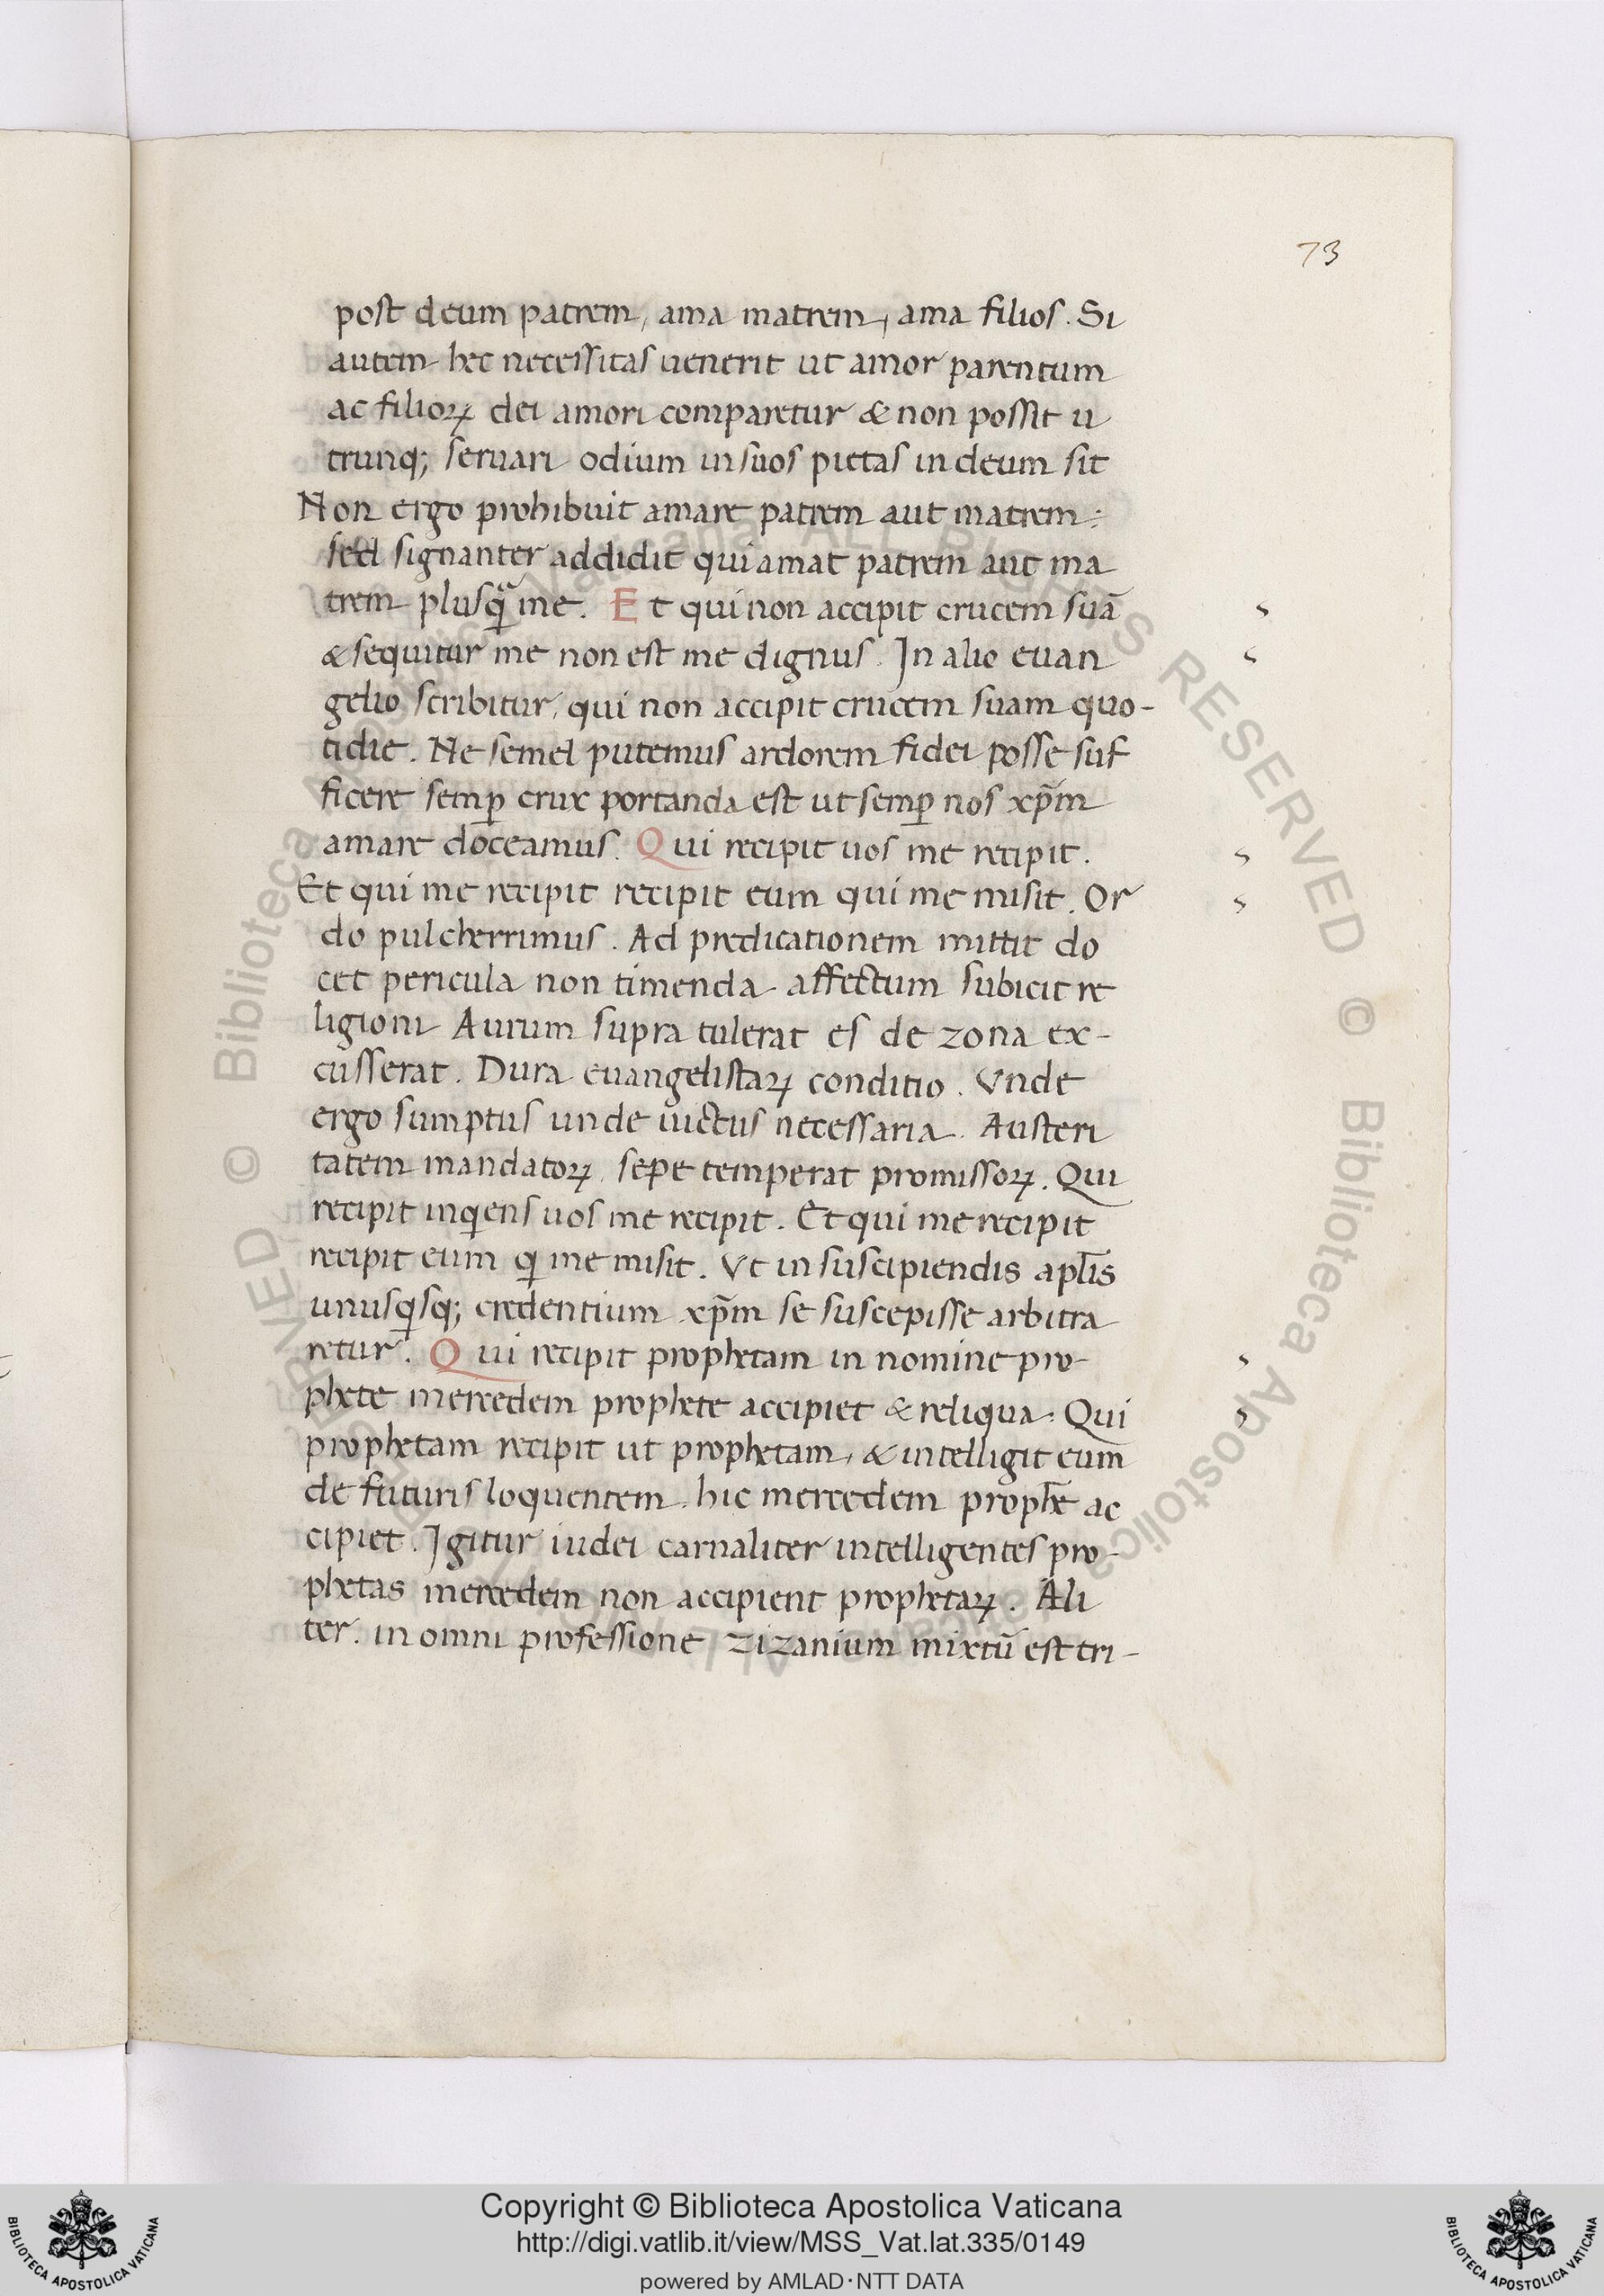 73
post deum patrem, ama matrem, ama filios. Si
autem hec necessitas uenerit ut amor parentum
ac filioꝝ dei amori comparetur & non possit u
trunq; seruari odium in suos pietas in deum sit
Non ergo prohibuit amare patrem aut matrem:
sed signanter addidit qui amat patrem aut ma
trem plusꝙᷓ me. Et qui non accipit crucem suā
& sequitur me non est me dignus. In alio euan
gelio scribitur, qui non accipit crucem suam quo-
tidie. Ne semel putemus ardorem fidei posse suf
ficere semꝑ crux portanda est ut semꝑ nos xp̄m
amare doceamus. Qui recipit uos me recipit.
Et qui me recipit recipit eum qui me misit. Or
do pulcherrimus. Ad predicationem mittit do
cet pericula non timenda affectum subicit re
ligioni Aurum supra tulerat es de zona ex-
cusserat. Dura euangelistaꝝ conditio. Vnde
ergo sumptus unde uictus necessaria. Austeri
tatem mandatoꝝ, sepe temperat promissoꝝ. Qui
recipit inqͥens uos me recipit. Et qui me recipit
recipit eum qͥ me misit. Vt in suscipiendis apl̄is
unusqͥsq; credentium xp̄m se suscepisse arbitra
retur. Qui recipit prophetam in nomine pro-
phete mercedem prophete accipiet & reliqua. Qui
prophetam recipit ut prophetam, & intelligit eum
de futuris loquentem. hic mercedem proph̄e ac
cipiet. Igitur iudei carnaliter intelligentes pro-
phetas mercedem non accipient prophetaꝝ. Ali
ter. in omni professione zizanium mixtū est tri-
© Biblioteca Apostolica Vaticana ALL RIGHTS RESERVED © Biblioteca Apostolica Vaticana ALL RIGHTS RESERVED
Copyright © Biblioteca Apostolica Vaticana
http://digi.vatlib.it/view/MSS_Vat.lat.335/0149
powered by AMLAD·NTT DATA
BIBLIOTECA APOSTOLICA VATICANA
BIBLIOTECA APOSTOLICA VATICANA